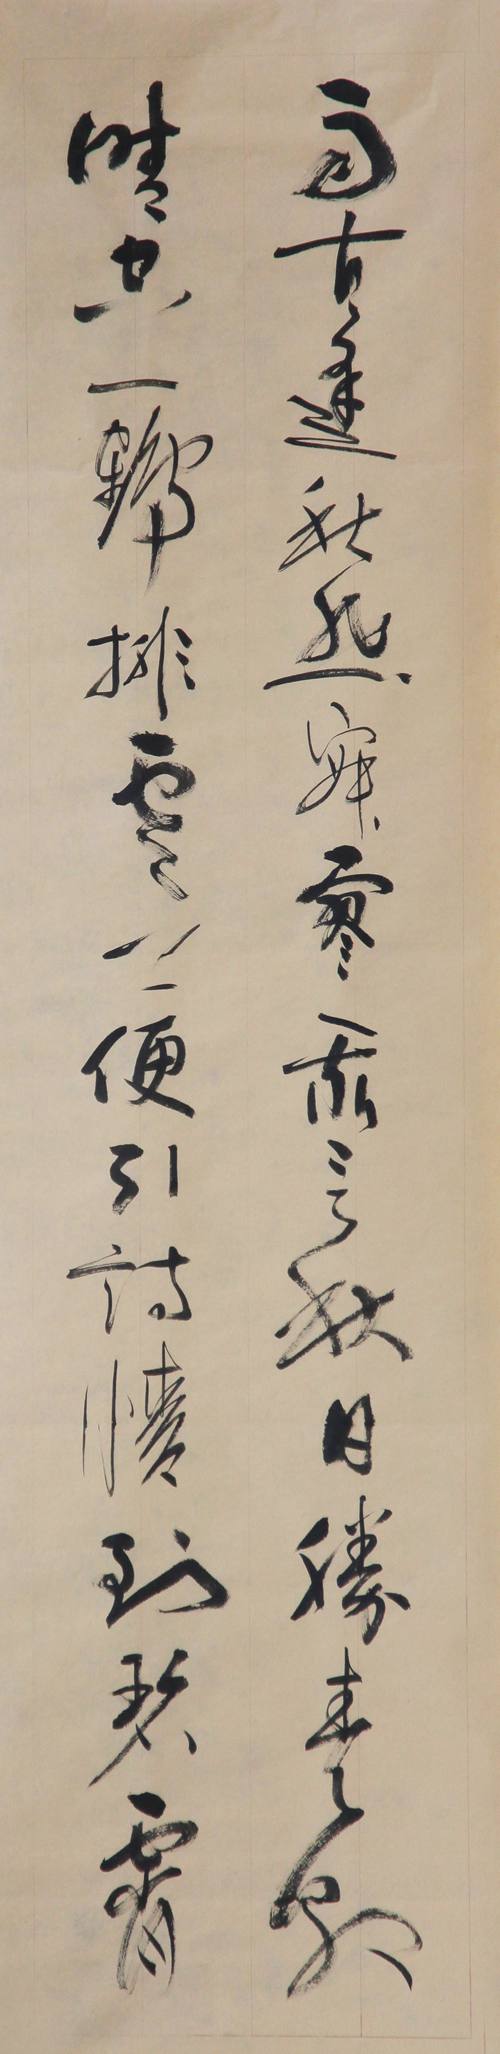 自古逢秋悲寂寥我言秋日勝春朝
晴空一鶴排雲上便引詩情到碧霄